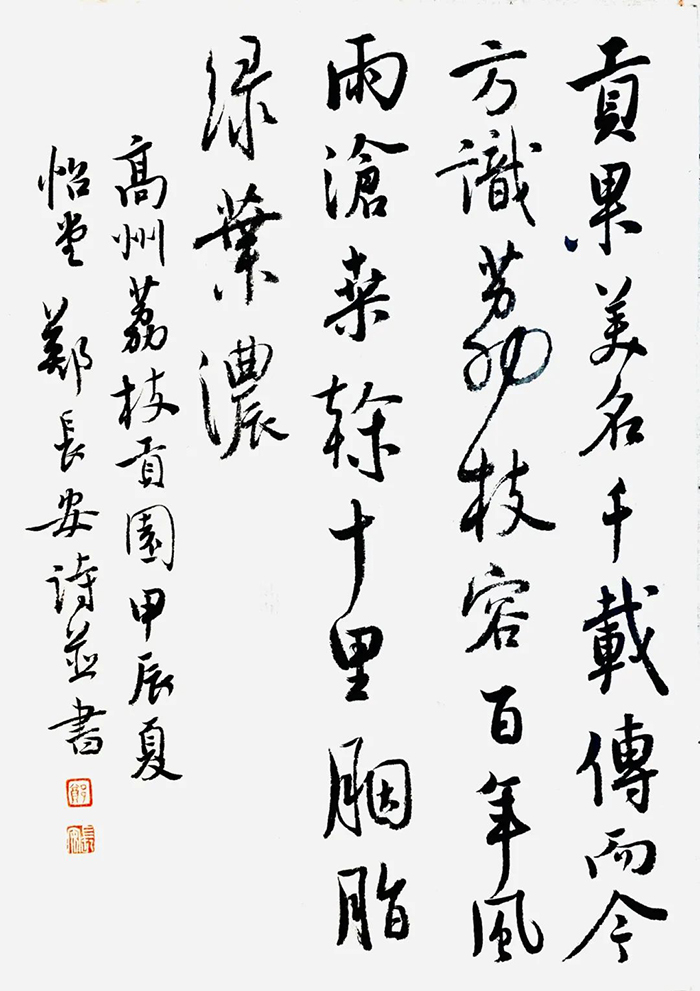 貢果美名千載傳而今
方識荔枝容百年風
雨滄桑榦十里胭脂
绿葉濃
高州荔枝貢園甲辰夏
怡堂鄭長安詩並書
鄭
長安